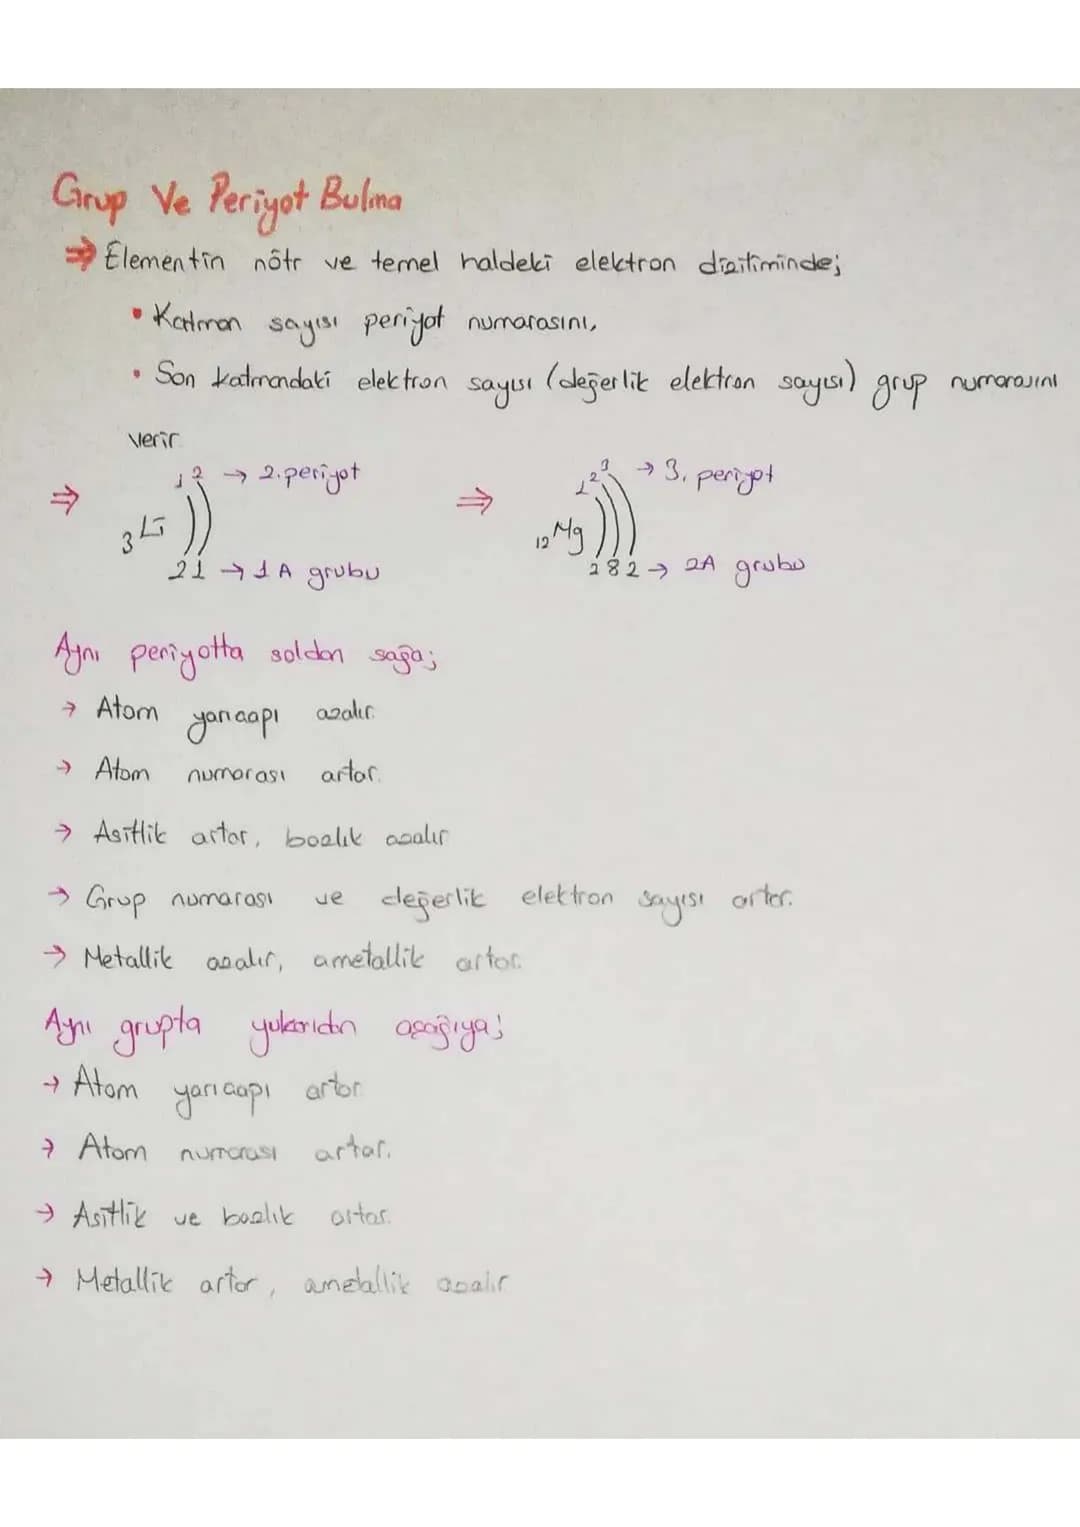 Grup Ve Periyot Bulma
⇒ Elementin nötr ve temel haldeki elektron diziliminde;
• Katman sayısı periyot numarasını,
• Son katmandaki elektron sayısı (değerlik elektron sayısı) grup numarasını
verir
1 2 → 2. periyot
⇒ 3Li )))
2 1 → 1A grubu
1 2 3 → 3. periyot
⇒ 12Mg )))
2 8 2 → 2A grubu
Aynı periyotta soldan sağa;
→ Atom yarıçapı azalır.
→ Atom numarası artar.
→ Asitlik artar, bazlık azalır
→ Grup numarası ve değerlik elektron sayısı artar.
→ Metallik azalır, ametallik artar.
Aynı grupta yukarıdan aşağıya;
→ Atom yarıçapı artar
→ Atom numarası artar.
→ Asitlik ve bazlık artar.
→ Metallik artar, ametallik azalır